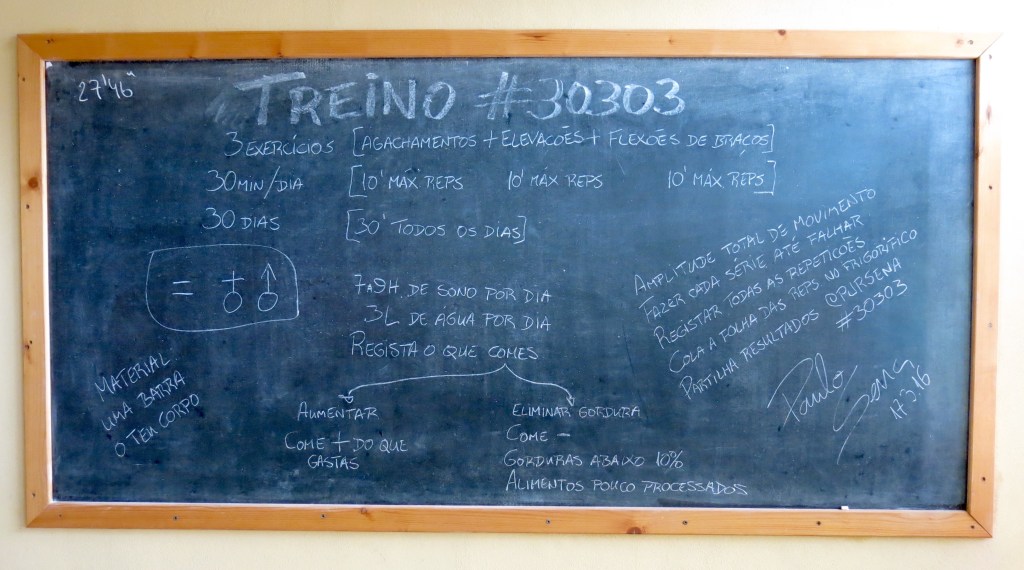 27'46"
TREINO #30303
3 EXERCÍCIOS [AGACHAMENTOS + ELEVACÕES + FLEXÕES DE BRAÇOS]
30 MIN/DIA [10' MAX REPS 10' MÁX REPS 10' MÁX REPS]
30 DIAS [30' TODOS OS DIAS]
= ♀ ♂
7 a 9H. DE SONO POR DIA
3L DE AGUA POR DIA
REGISTA O QUE COMES
AUMENTAR
COME + DO QUE
GASTAS
ELIMINAR GORDURA
COME -
GORDURAS ABAIXO 10%
ALIMENTOS POUCO PROCESSADOS
MATERIAL
UMA BARRA
O TEU CORPO
AMPLITUDE TOTAL DE MOVIMENTO
FAZER CADA SÉRIE ATÉ FALHAR
REGISTAR TODAS AS REPETICÕES
COLA A FOLHA DAS REPS NO FRIGORÍFICO
PARTILHA RESULTADOS @PJRSENA
#30303
Paulo Sena
17.3.16